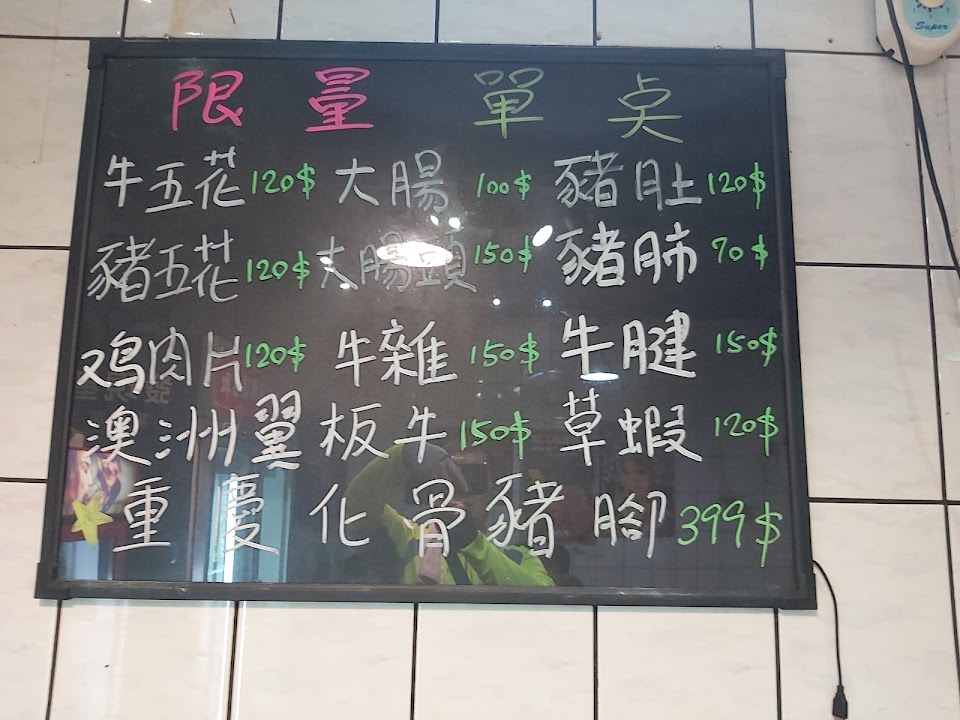 限量 單点
牛五花 120$ 大腸 100$ 豬肚 120$
豬五花 120$ 大腸頭 150$ 豬肺 70$
鸡肉片 120$ 牛雜 150$ 牛腱 150$
澳洲翼板牛 150$ 草蝦 120$
重慶化骨豬腳 399$
Super